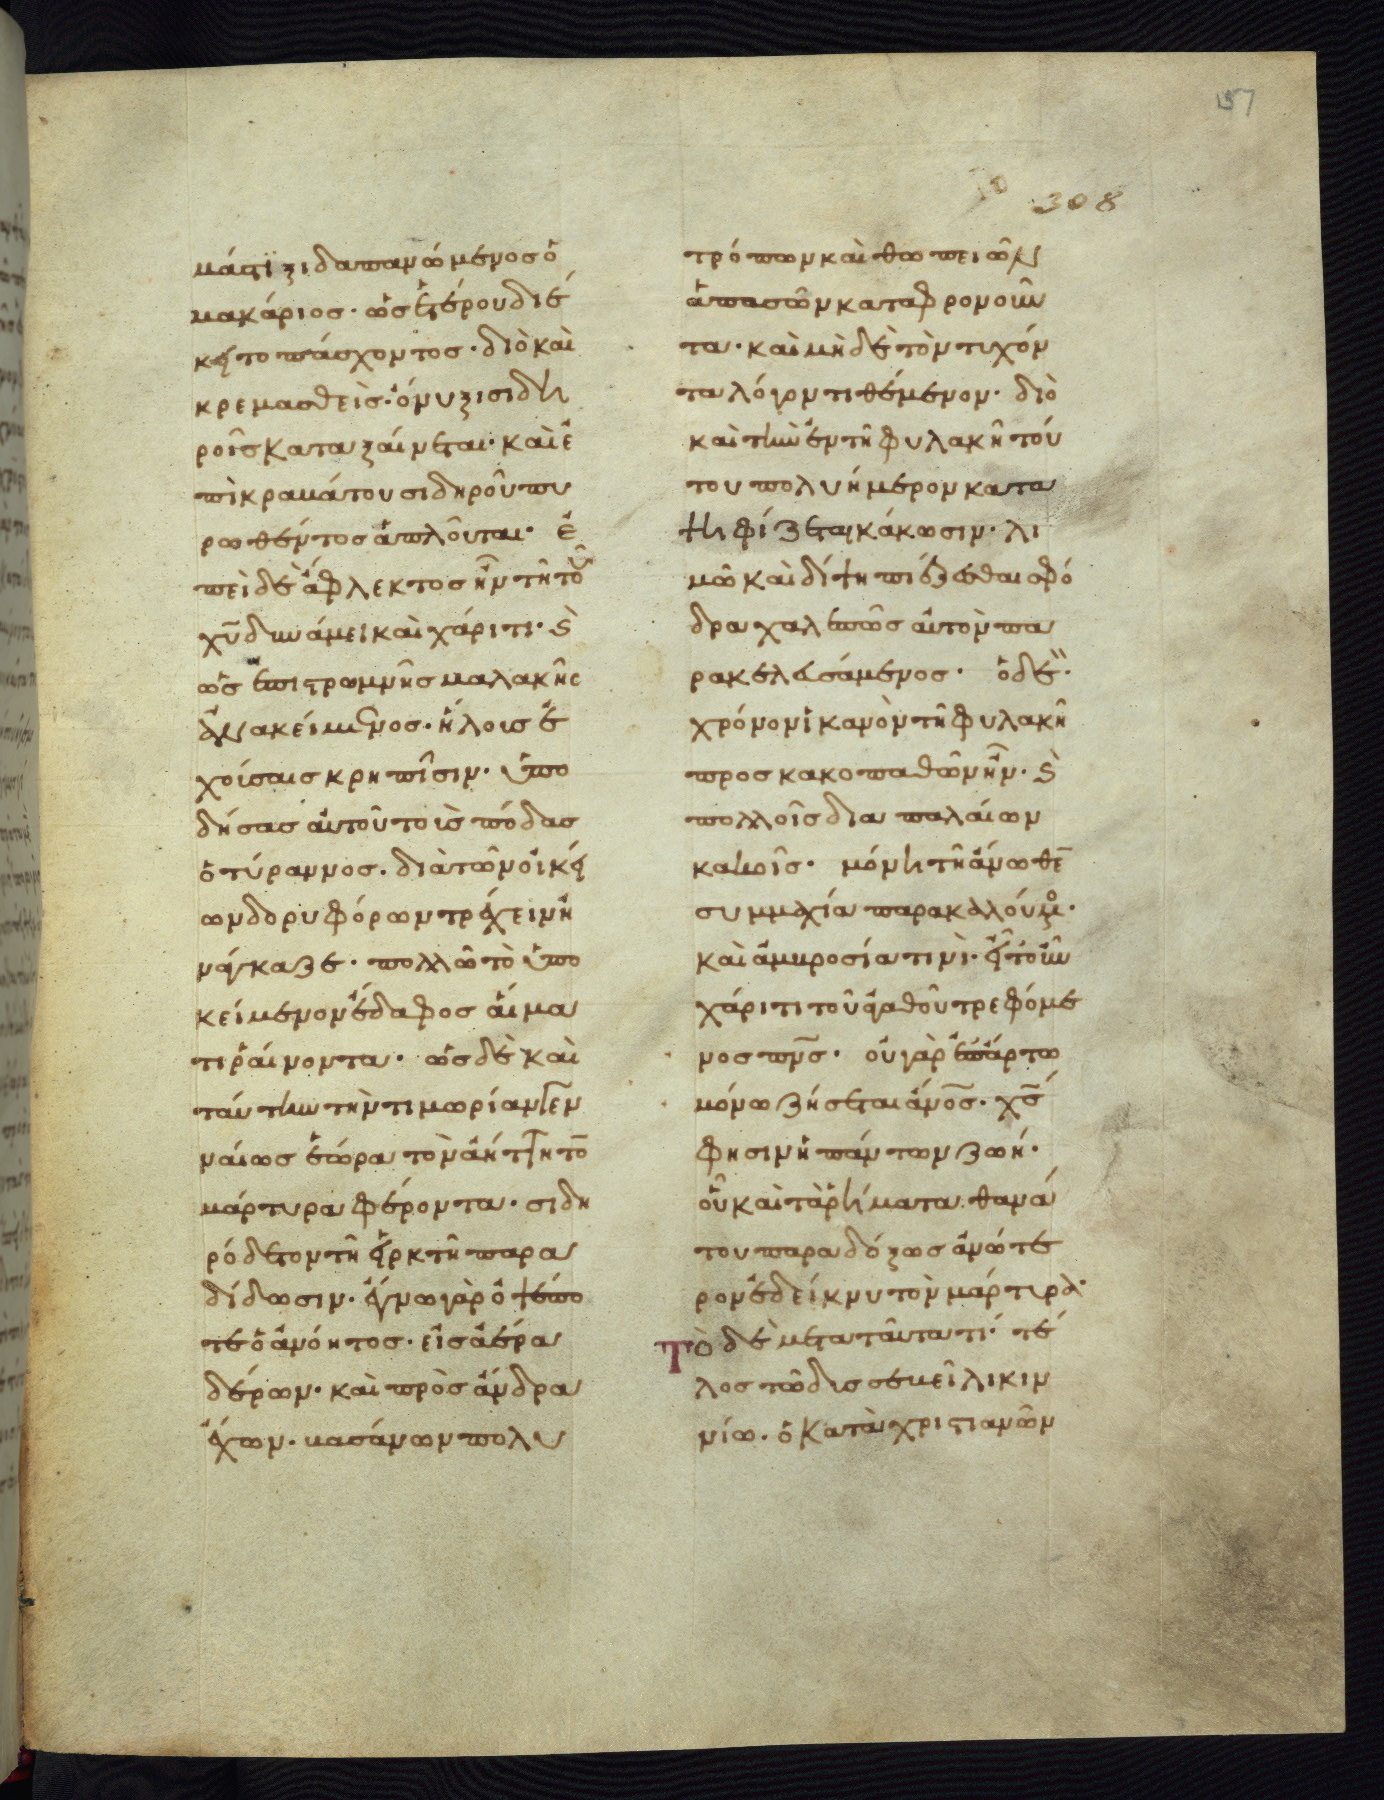 157
308
μάστιξι δαπανώμενος ὁ
μακάριος· ὡς ἑτέρου διέ
κειτο πάσχοντος· διὸ καὶ
κρεμασθεὶς· ὄνυξι σιδη
ροῖς καταξαίνεται· καὶ ἐ
πὶ κραμάτου σιδηροῦ πυ
ρωθέντος ἁπλοῦται· ἐ
πεὶ δὲ ἄφλεκτος ἦν τῆ τοῦ
χυ δυνάμει καὶ χάριτι· καὶ
ὡς ἐπὶ στρωμνῆς μαλακῆς
ἀνακείμενος· ἥλοις ἐ
χούσαις κρηπῖσιν· ὑπο
δήσας αὐτοῦ τοὺς πόδας
ὁ τύραννος· διὰ τῶν οἰκεί
ων δορυφόρων τρέχειν ἠ
νάγκαζε· πολλῶ τὸ ὑπο
κείμενον ἔδαφος αἵμα
τι ῥαίνοντα· ὡς δὲ καὶ
ταύτην τὴν τιμωρίαν γεν
ναίως ἑώρα τὸν ἀήττητον
μάρτυρα φέροντα· σιδη
ρόδετον τῆ εἱρκτῆ παρα
δίδωσιν· ἔγνω γὰρ ὀψέ πο
τε ὁ ἀνόητος· εἰς ἀέρα
δέρων· καὶ πρὸς ἄνδρα
ἔχων· βασάνων πολυ
τρόπων καὶ θωπειῶν
ἁπασῶν καταφρονοῦν
τα· καὶ μηδὲ τὸν τυχόν
τα λόγον τιθέμενον· διὸ
καὶ τὴν ἐν τῆ φυλακῆ τού
του πολυήμερον κατα
ψηφίζεται κάκωσιν· λι
μῶ καὶ δίψη πιέζεσθαι σφό
δρα χαλεπῶς αὐτὸν πα
ρακελευσάμενος· ὁ δὲ
χρόνον ἱκανὸν τῆ φυλακῆ
προσκακοπαθῶν ἦν· καὶ
πολλοῖς διαπαλαίων
καιροῖς· μόνη τῆ ἄνωθεν
συμμαχία παρακαλούμενος·
καὶ ἀμβροσία τινὶ· εἴτουν
χάριτι τοῦ ἀγαθοῦ τρεφόμε
νος πνς· οὐ γὰρ ἐπ' ἄρτω
μόνω ζήσεται ἄνος· χς
φησιν ἡ πάντων ζωή·
οὗ καὶ τὰ ῥήματα θανά
του παραδόξως ἀνώτε
ρον ἐδείκνυ τὸν μάρτυρα·
Τὸ δὲ μετα ταῦτα τί· τέ
λος τῶ δυσσεβεῖ λικιν
νίω· ὁ κατὰ χριστιανῶν